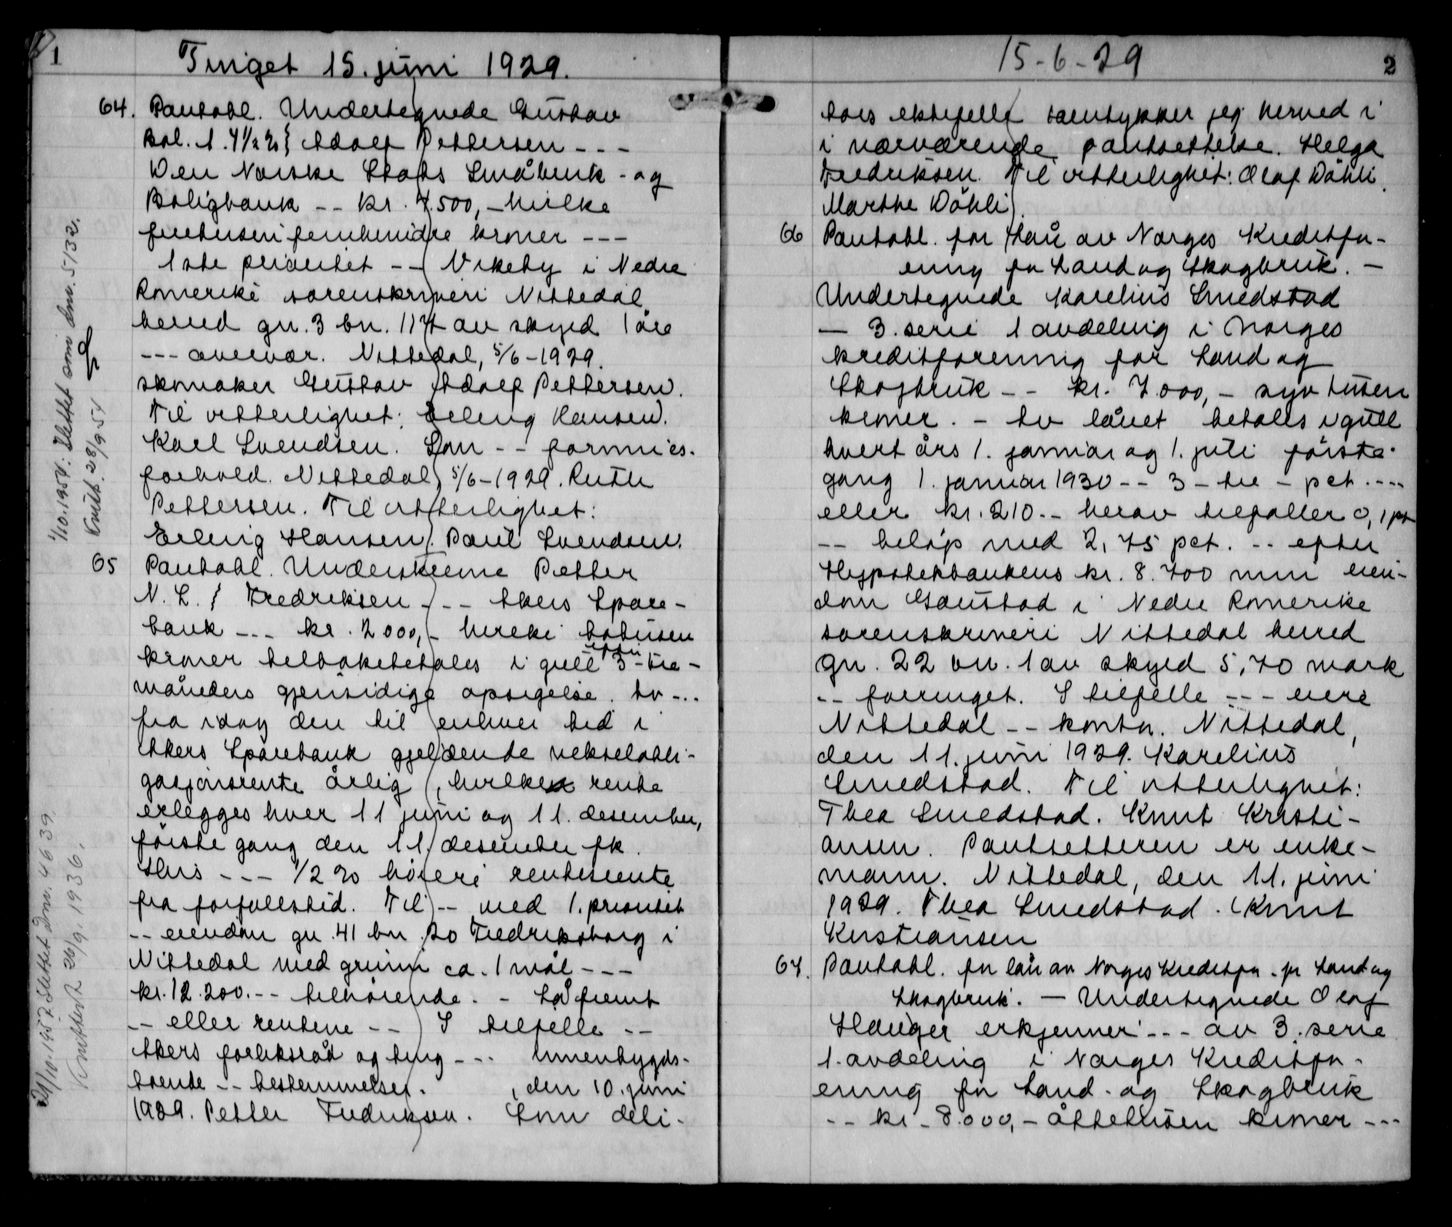 1
Tinget 15. juni 1929.
64. Pantobl. Undertegnede Gustav
Bol. 1. 4 1/2 % } Adolf Pettersen ---
Den Norske Stats Småbruk- og
Boligbank -- kr. 7500,- hvilke
femhundre kroner ---
1ste prioritet -- Vikeby i Nedre
Romerike sorenskriveri Nittedal
herred gn. 3 bn. 117 av skyld 1 øre
--- Nittedal, 5/6-1929.
skomaker Gustav Adolf Pettersen.
Til vitterlighet: Erling Hansen.
Karl Svendsen. Som -- formues-
forhold. Nittedal, 5/6-1929. Ruth
Pettersen. Til vitterlighet:
Erling Hansen. Paul Svendsen.
65 Pantobl. Underskrevne Petter
N. L. } Fredriksen --- Akers Spare-
bank --- kr. 2000,- totusen
kroner tilbakebetales i gull efter 3-tre-
måneders gjensidige opsigelse. Av ---
fra idag den til enhver tid i
Akers Sparebank gjeldende vekselobli-
gasjonsrente årlig, hvilken rente
erlegges hver 11 juni og 11. desember,
første gang den 11. desember fk.
Hvis --- 1/2 % høiere rentesrente
fra forfallstid. Til -- med 1. prioritet
-- eiendom gn. 41 bn. 20 Fredriksborg i
Nittedal med grunn ca. 1 mål ---
kr. 12.200.-- tilhørende. - Såfremt
-- eller rentene -- I tilfelle --
Akers forliksråd og ting --- innenbygds-
boende -- bestemmelser. , den 10. juni
1929. Petter Fredriksen. Som deli-
1/10.1954. Slettet som dnr. 5132.
28/9.54
29/10.1957 Slettet dnr. 4639
26/9. 1936.
15-6-29
2
tors ektefelle samtykker jeg herved i
i nærværende pantsettelse. Helga
Fredriksen. Til vitterlighet: Olaf Döhli.
Marthe Döhli.
66 Pantobl. for lån av Norges Kreditfor-
ening for Land og Skogbruk. -
Undertegnede Karelius Smedstad
- 3. serie 1 avdeling i Norges
Kreditforening for Land og
Skogbruk -- kr. 7000,- syv tusen
kroner. - Av lånet betales i gull
hvert års 1. januar og 1. juli første
gang 1. januar 1930 -- 3 - tre - pct. ---
eller kr. 210.- herav tilfaller 0,1 pct
-- beløp med 2,75 pct. -- efter
Hypotekbankens kr. 8.700 min eien-
dom Gaustad i Nedre Romerike
sorenskriveri Nittedal herred
gn. 22 bn. 1 av skyld 5,70 mark
-- forringet. I tilfelle ---
Nittedal -- Nittedal,
den 11. juni 1929. Karelius
Smedstad. Til vitterlighet:
Thea Smedstad. Knut Kristi-
ansen. Pantsetteren er enke-
mann. Nittedal, den 11. juni
1929. Thea Smedstad. Knut
Kristiansen
67. Pantobl. for lån av Norges Kreditfor. for Land og
Skogbruk. - Undertegnede Olaf
Hauger erkjenner --- av 3. serie
1. avdeling i Norges Kreditfor-
ening for Land- og Skogbruk
-- kr. 8.000,- åttetusen kroner ---